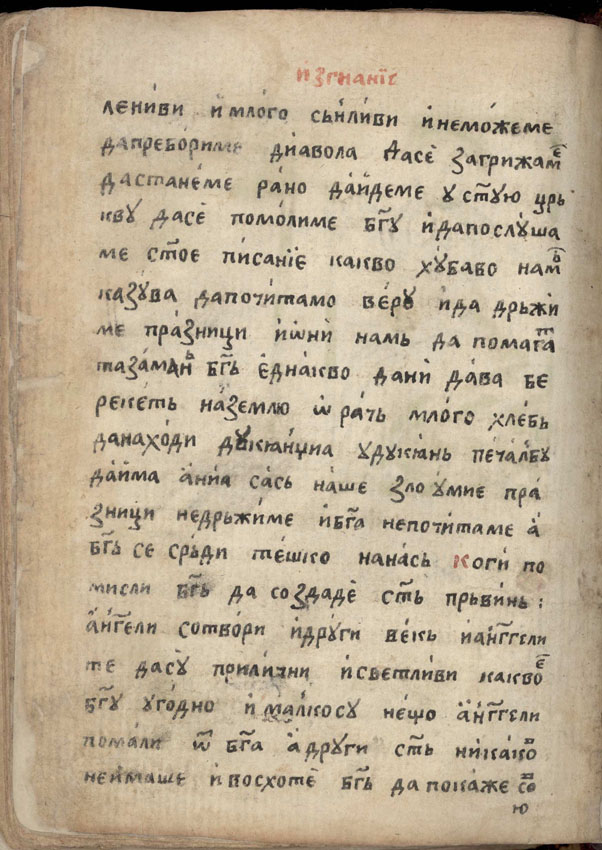 и҆згнанїе
лени́ви и҆ мло́го сьнли́ви и҆ немо́жеме
да пребо́риме дїа́вола да сѐ загри́жамⷷ
да стане́ме ра́но да́ и҆деме у ст҃ую црь
кву̀ да сѐ помо́лиме бг҃у и҆ да послу́ша
ме ст҃ое пи́санїе какво ху́баво намь
казу́ва да почи́тамо ве́ру и҆ да дрьжи́
ме пра́зници и҆ ѡ҆нѝ намь да помагатⷮ
та за́мань бг҃ь е҆дна́кво дани да́ва бе
реке́ть на́ землю ѡ҆ра́чь мло́го хле́бь
да нахо́ди дукꙗ́нциа у дукꙗ́нь печа́лбу
да́ и҆ма а҆ нїа сась на́ше зло у́мие пра́
зници недрьжи́ме и҆ бг҃а непочи́таме а҆̀
бг҃ь се сръ́ди те́шко на на́сь коги́ по
мисли бг҃ь да создадѐ ст҃ь прьви́нь :
а҆́нг҃ели сотво́ри и҆ дру́ги ве́кь и҆ а҆нг҃гели
те да су̀ прили́чни и҆ светли́ви каквоⷷ
бг҃у уго́дно и҆ ма́лко су не́що а҆́нг҃гели
пома́ли ѿ бг҃а а҆ дру́ги ст҃ь ника́ков
неи́маше и҆ восхотѐ бг҃ь да пока́же сво
ю